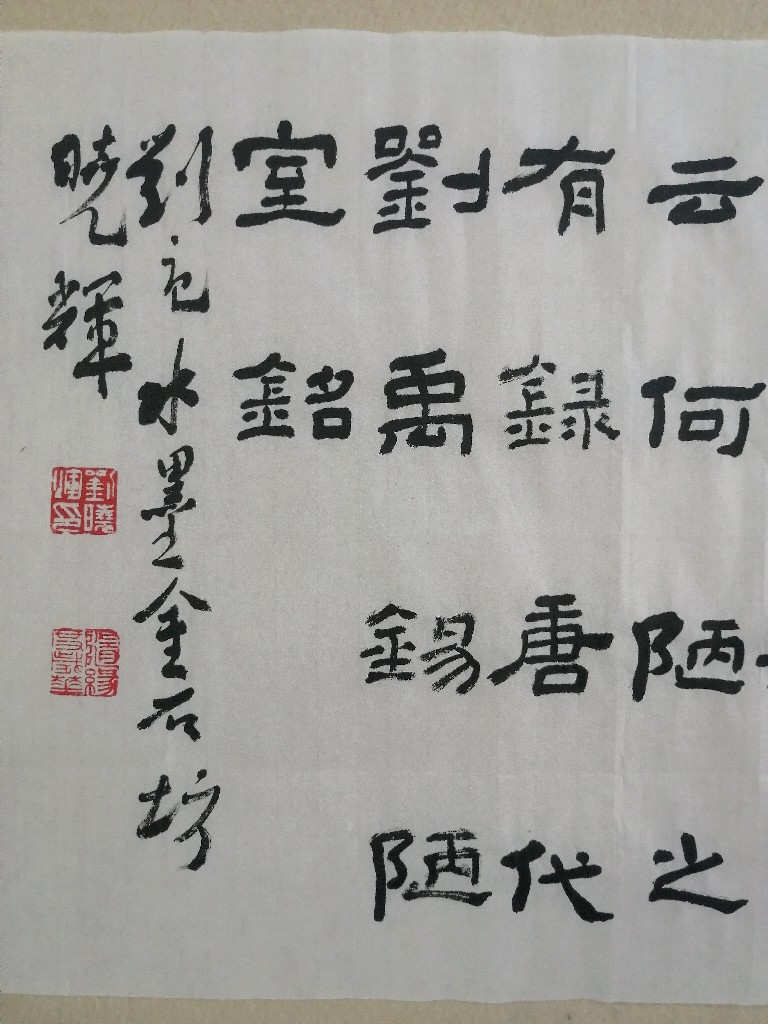 云何陋之
有録唐代
劉禹錫陋
室銘
劉
水墨金石坊
曉輝
劉曉輝印